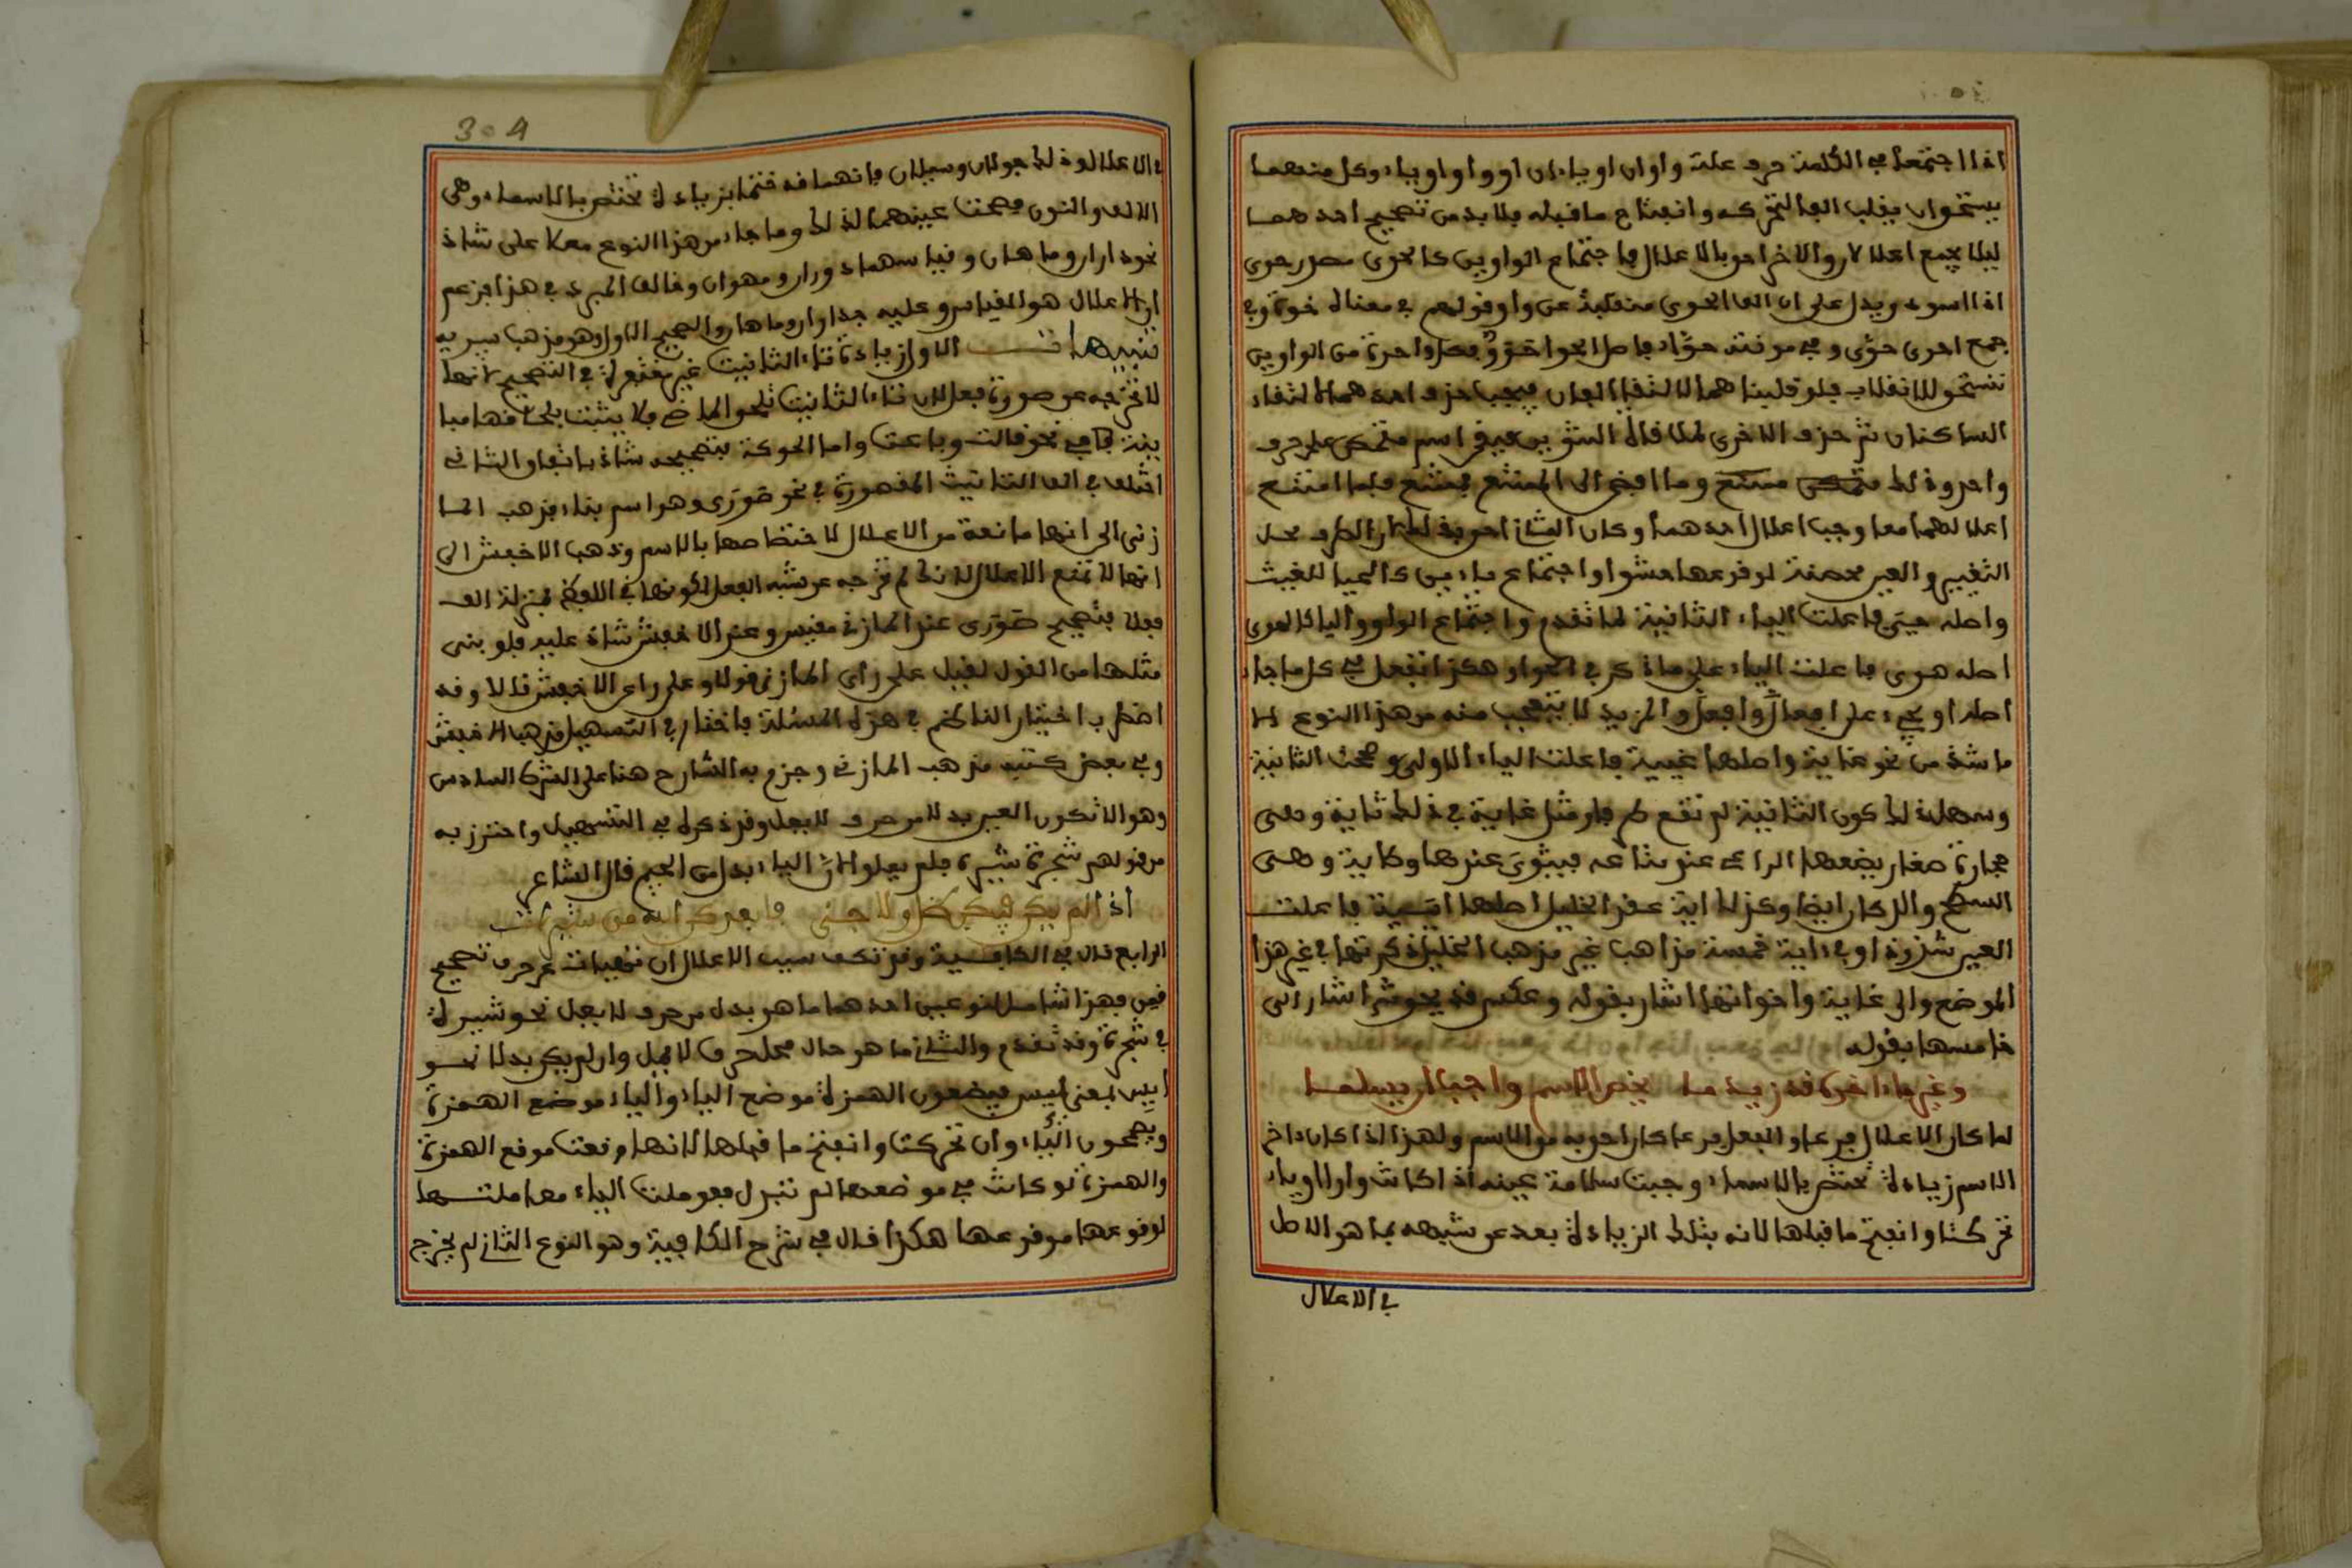 اذا اجتمعا في الكلمة حرف علة واوان او ياءان او واو وياء وكل منهما
يستحق ان يقلب الفا لتحركه وانفتاح ما قبله فلا بد من تصحيح احدهما
ليلا يجمع اعلالان والاخر احق بالاعلال فاجتماع الواوين كالحوى مصدر حوى
اذا اسود ويدل على ان الف الحوى منقلبة عن واو قولهم في معناه حوة وفي
جمع احوى حوّ وفي مونثه حوّاء فاصل الحوا حوو فكل واحدة من الواوين
تستحق الانقلاب فلو قلبناهما لالتقا الفان فيجب حذف احدهما لالتقاء
الساكنان ثم حذف الاخرى لملاقاة التنوين فيبقى اسم متمكن على حرف
واحد وذلك ممتنع وما افضى الى الممتنع ممتنع فلما امتنع
اعلالهما معا وجب اعلال احدهما وكان الثاني احق بذلك لان الطرف محل
التغيير والعين محصنة لوقوعها حشوا واجتماع ياءين كالحيا للغيث
واصله حيي فاعلت الياء الثانية لما تقدم واجتماع الواو والياء كالهوى
اصله هوى فاعلت الياء على ما ذكر في الحوا وهكذا تفعل في كل ما جاء
ما شذ من نحو غاية واصلها غيية فاعلت الياء الاولى وصحت الثانية
وسهل ذلك كون الثانية لم تقع طرفا ومثل غاية في ذلك ثاية وهي
حجارة صغار يضعها الراعي عند متاعه فيثوى عندها وطاية وهي
السطح والدكان ايضا وكذلك اية عند الخليل اصلها اييية فاعلت
العين شذوذا وفي ءاية خمسة مذاهب غير مذهب الخليل ذكرتها في غير هذا
الموضع والى غاية واخواتها اشار بقوله وعكس قد يحق ثم اشار الى
خامسها بقوله
وعين ما ءاخره قد زيد ما يخص الاسم واجب ان يسلما
لما كان الاعلال فرعا والفعل فرعا كان احق به من الاسم ولهذا اذا كان ءاخر
الاسم زيادة تختص بالاسماء وجبت سلامة عينه اذا كانت واوا او ياء
تحركتا وانفتح ما قبلها لانه بتلك الزيادة بعد عن شبهه بما هو الاصل
في الاعلال
304
في الاعلال وذلك جولان وسيلان فانهما قد ختما بزيادة تختص بالاسماء وهي
الالف والنون فصحتا عينهما لذلك وما جاء من هذا النوع معلا على شاذ
نحو داران وماهان وقياسهما دوران وموهان وخالف المبرد في هذا فزعم
ان الاعلال هو القياس وعليه جا داران وماهان والصحيح الاول وهو مذهب سيبويه
تنبيهات الاول زيادة تاء التانيث غير معتبرة في التصحيح لانها
لا تخرجه عن صورة فعل لان تاء التانيث تلحق الماضي فلا يثبت بلحاقها مبا
ينة كما في نحو قالت وباعت واما الحوكة فتصحيحه شاذ باتفاق الثاني
اختلف في الف التانيث المقصورة في نحو صورى وهو اسم ماء فذهب الما
زني الى انها مانعة من الاعلال لاختصاصها بالاسم وذهب الاخفش الى
انها لا تمنع الاعلال لانها لم تخرجه عن شبه الفعل لكونها في اللفظ بمنزلة الف
فعلا فتصحيح صورى عند المازني مقيس وعند الاخفش شاذ عليه فلو بنى
مثلها من القول لقيل على راى المازني قولا وعلى راي الاخفش قالا وقد
اضطرب اختيار الناظم في هذه المسئلة فاختار في التسهيل مذهب الاخفش
وفي بعض كتبه مذهب المازني وجزم به الشارح هنا على الشرط السادس
وهو الا تكون العين بدلا من حرف لا يعل وقد ذكره في التسهيل واحترز به
من قولهم شجرة شيرة فلم يعلوا لان الياء بدل من الجيم قال الشاعر
اذا لم يكن فيكن ظل ولا جنى فابعدكن الله من شيرات
الرابع قال في الكافية وقد تكف سبب الاعلال ان تنوب عن حرف تصحيح
فمن فهذا شامل لنوعين احدهما ما هو بدل من حرف لا يعل نحو شيرة
في شجرة وقد تقدم والثاني ما هو حال محل حرف لا يعل وان لم يكن بدلا نحو
ايس بمعنى يئس فيضعون الهمزة موضع الياء والياء موضع الهمزة
ويصححون الياء وان تحركت وانفتح ما قبلها لانها وقعت موقع الهمزة
والهمزة لو كانت في موضعها لم تبدل فعوملت الياء معاملتها
لوقوعها موقعها هكذا قال في شرح الكافية وهو النوع الثاني لم يخرج